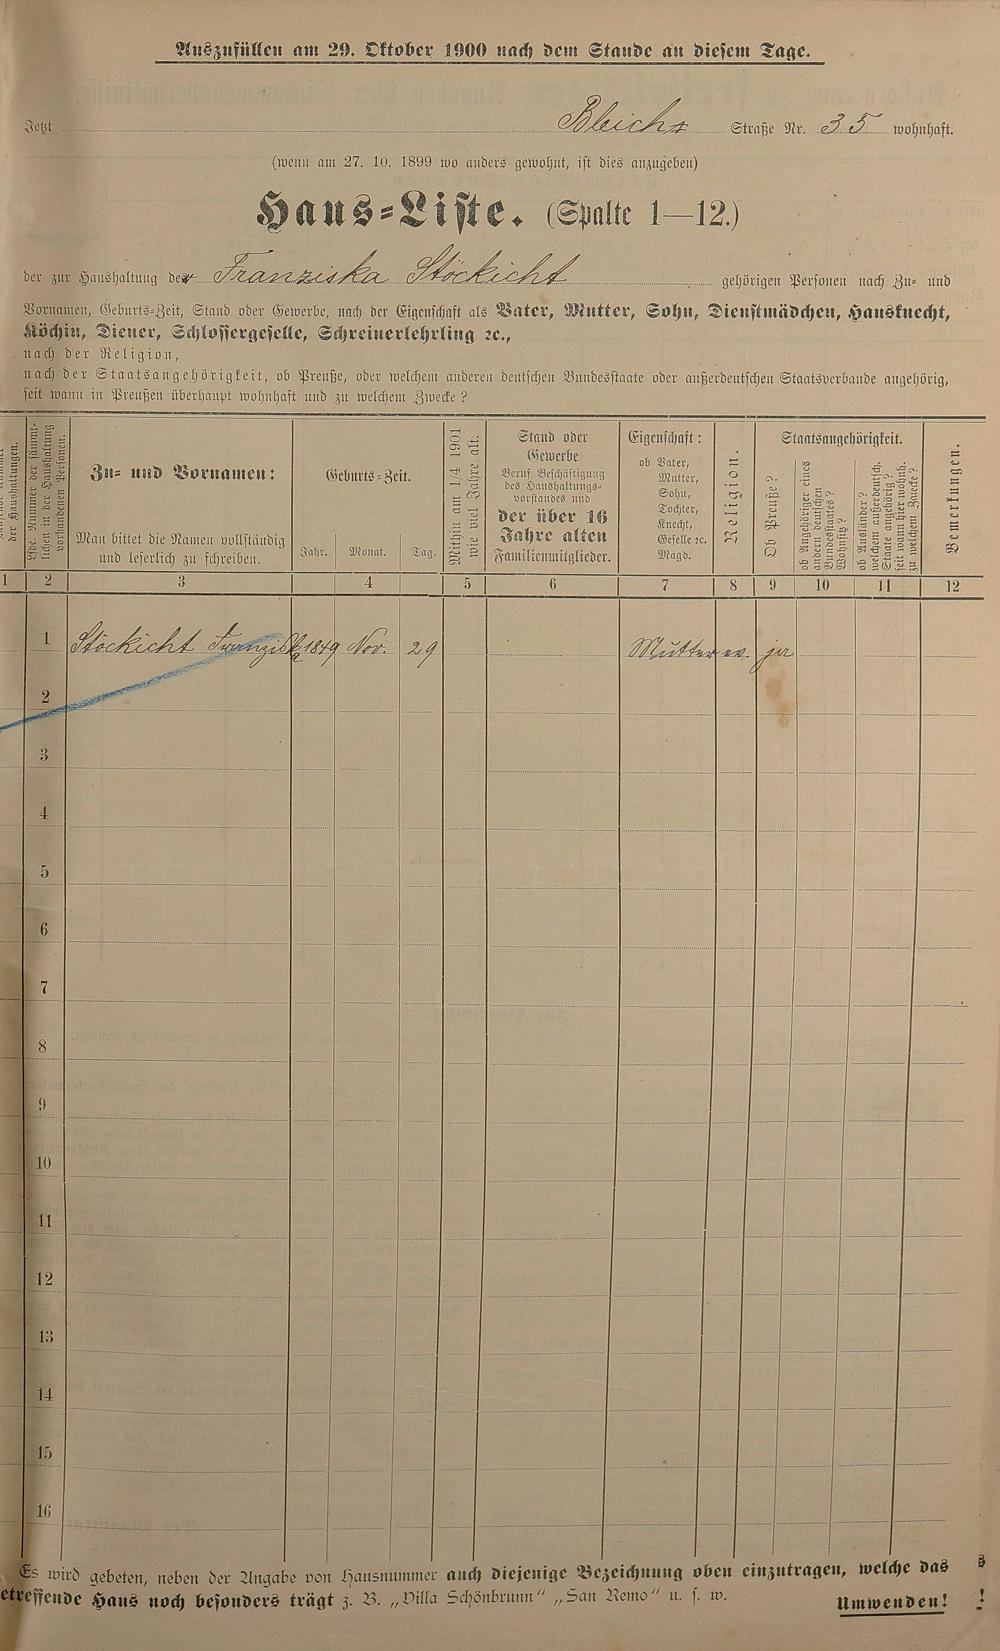 Auszufüllen am 29. Oktober 1900 nach dem Stande an diesem Tage.
Jetzt Bleichs Straße Nr. 35 wohnhaft.
(wenn am 27. 10. 1899 wo anders gewohnt, ist dies anzugeben)
Haus-Liste. (Spalte 1—12.)
der zur Haushaltung der Franziska Stöckicht gehörigen Personen nach Zu- und
Vornamen, Geburts-Zeit, Stand oder Gewerbe, nach der Eigenschaft als Vater, Mutter, Sohn, Dienstmädchen, Hausknecht,
Köchin, Diener, Schlossergeselle, Schreinerlehrling ꝛc.,
nach der Religion,
nach der Staatsangehörigkeit, ob Preuße, oder welchem anderen deutschen Bundesstaate oder außerdeutschen Staatsverbande angehörig,
seit wann in Preußen überhaupt wohnhaft und zu welchem Zwecke?
der Haushaltungen.
Lfde. Nummer der sämmt-
lichen in der Haushaltung
vorhandenen Personen.
Zu- und Vornamen:
Man bittet die Namen vollständig
und leserlich zu schreiben.
Geburts-Zeit.
Jahr. Monat. Tag.
Mithin am 1/4 1901
wie viel Jahre alt.
Stand oder
Gewerbe
Beruf Beschäftigung
des Haushaltungs-
vorstandes und
der über 16
Jahre alten
Familienmitglieder.
Eigenschaft:
ob Vater,
Mutter,
Sohn,
Tochter,
Knecht,
Geselle ꝛc.
Magd.
Religion.
Staatsangehörigkeit.
Ob Preuße?
ob Angehöriger eines
andern deutschen
Bundesstaates?
Wohnsitz?
ob Ausländer?
welchem außerdeutsch.
Staate angehörig?
seit wann hier wohnh.
zu welchem Zwecke?
Bemerkungen.
1 2 3 4 5 6 7 8 9 10 11 12
1 Stöckicht Franziska 1849 Nov. 29 Mutter ev. ja
2
3
4
5
6
7
8
9
10
11
12
13
14
15
16
Es wird gebeten, neben der Angabe von Hausnummer auch diejenige Bezeichnung oben einzutragen, welche das
etreffende Haus noch besonders trägt z. B. „Villa Schönbrunn" „San Remo" u. s. w. Umwenden!